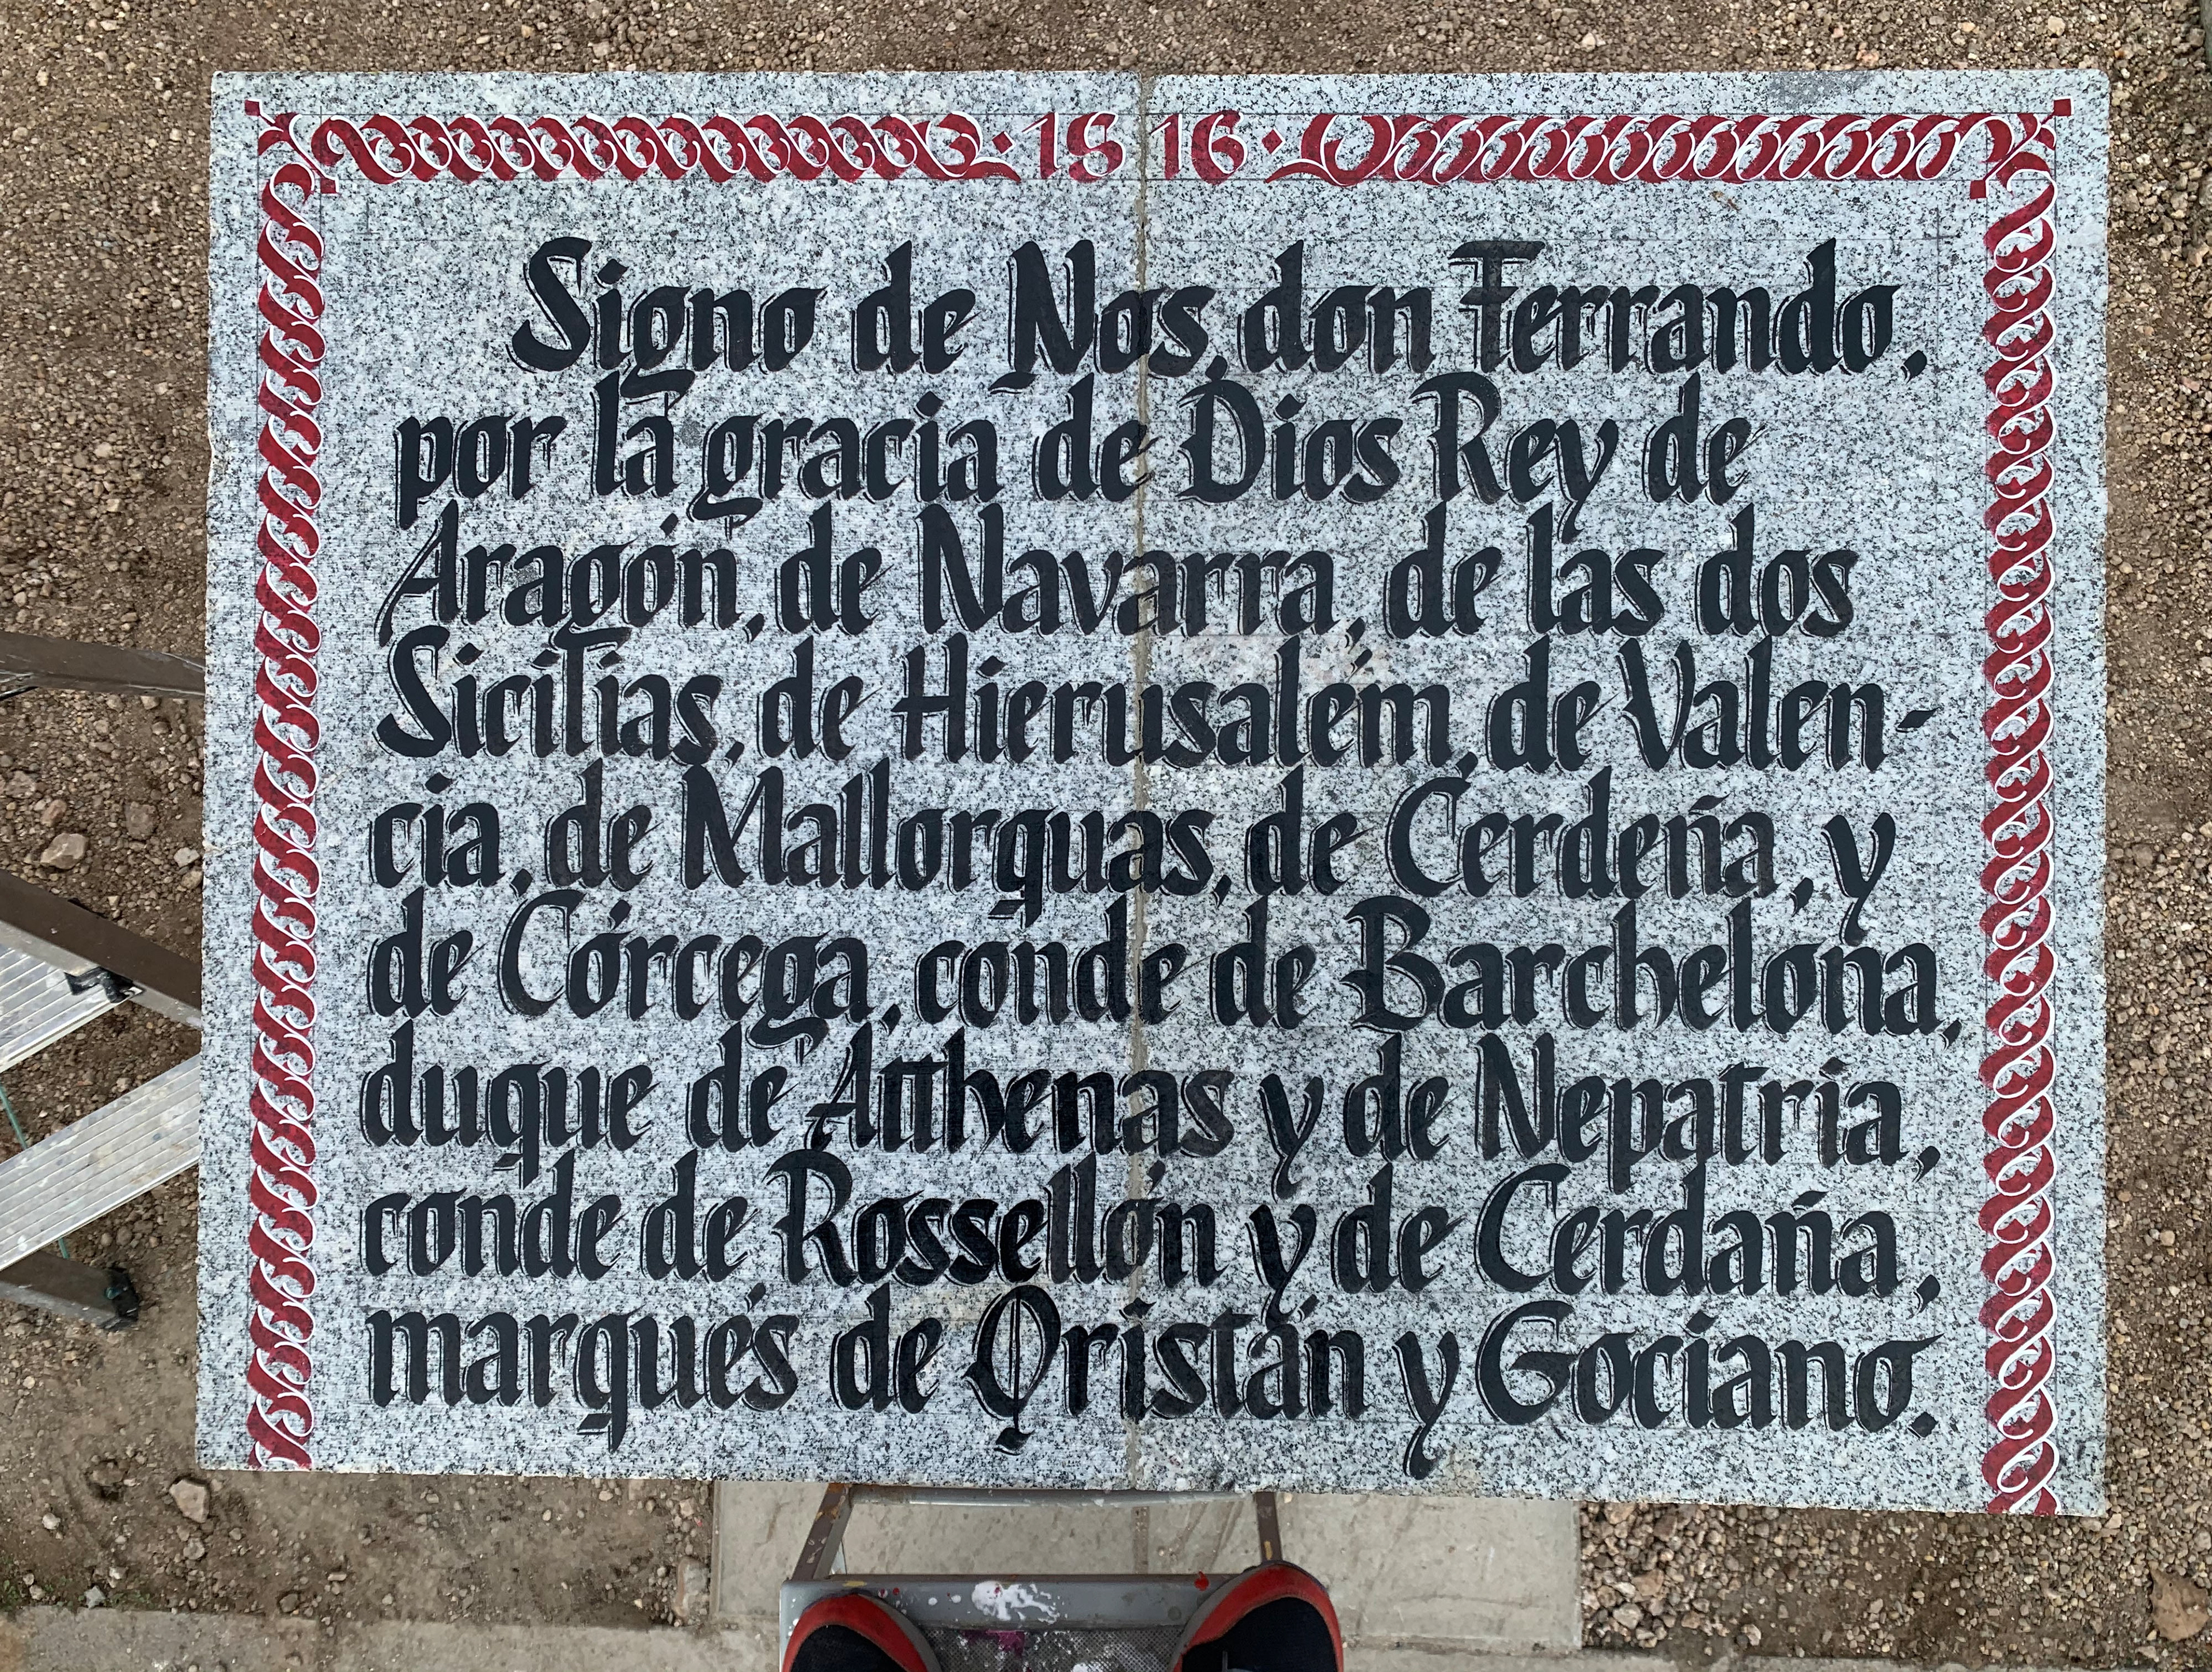 · 1516 ·
Signo de Nos, don Ferrando,
por la gracia de Dios Rey de
Aragón, de Navarra, de las dos
Sicilias, de Hierusalém, de Valen-
cia, de Mallorquas, de Cerdeña, y
de Córcega, conde de Barchelona,
duque de Atthenas y de Nepatria,
conde de Rossellón y de Cerdaña,
marqués de Oristán y Gociano.